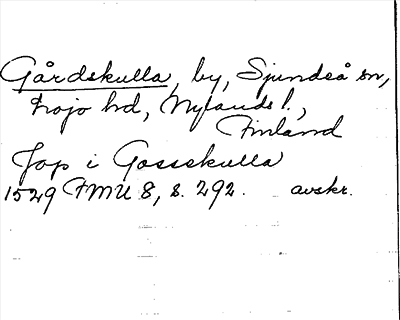 Gårdskulla, by, Sjundeå sn,
Lojo hd, Nylands l.,
Finland
Jop i Gossskulla
1529 FMU 8, s. 292. avskr.